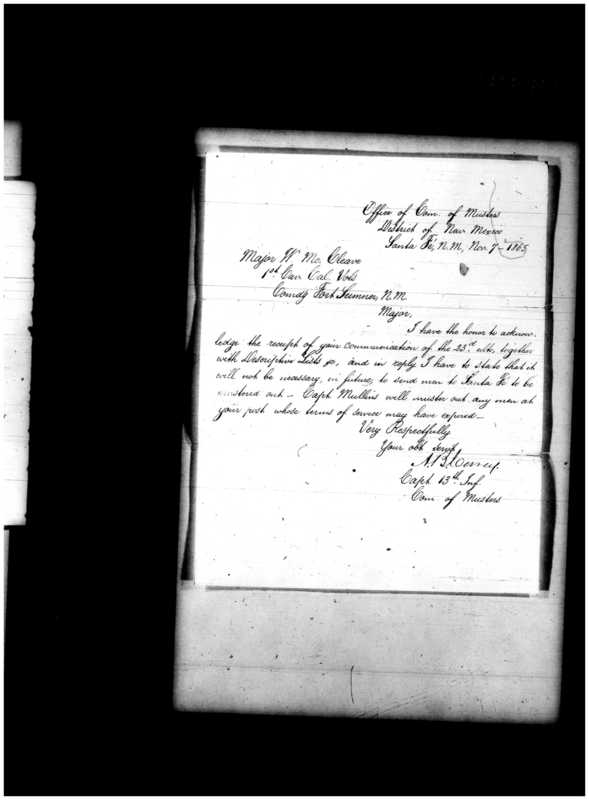 Office of Com. of Musters
District of New Mexico
Santa Fe, N.M., Nov. 7 - 1865
Major Wm Mc Cleave
1st Cav. Cal. Vols
Comdg Fort Sumner, N.M.
Major,
I have the honor to acknow-
ledge the receipt of your communication of the 23rd ulto, together
with Descriptive Lists &c, and in reply I have to state that it
will not be necessary, in future, to send men to Santa Fe to be
mustered out - Capt Mullins will muster out any men at
your post whose terms of service may have expired -
Very Respectfully
Your obt Servt
Capt. 13th Inf.
Com. of Musters